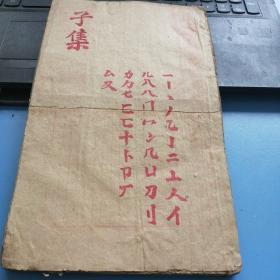 子集
一丨丶丿乙亅二亠人亻
儿入八冂冖冫几凵刀刂
力勹匕匚匸十卜卩厂
厶又